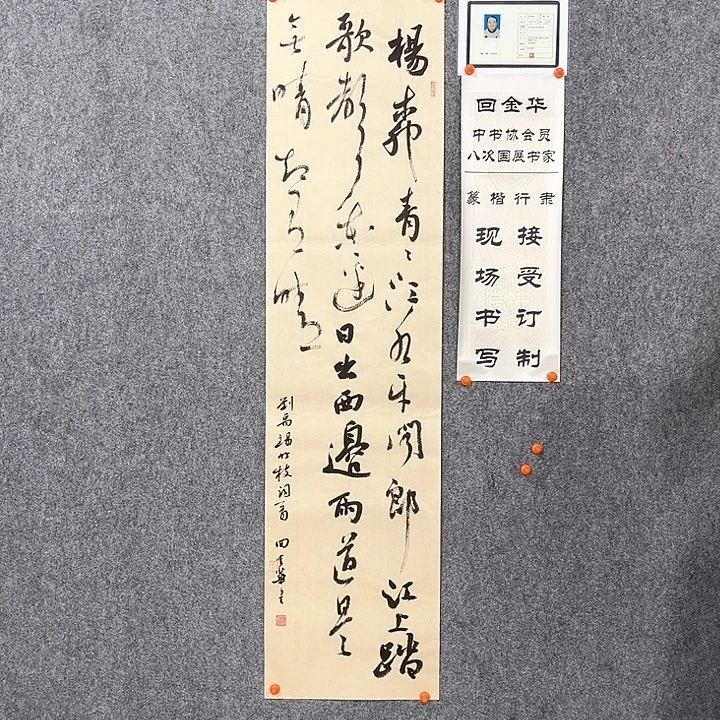 楊柳青〻江水平聞郎江上踏
歌聲東邊日出西邊雨道是
無晴却有晴
劉禹錫竹枝詞一首 回金華書
回金华
中书协会员
八次国展书家
篆楷行隶
现场书写
接受订制